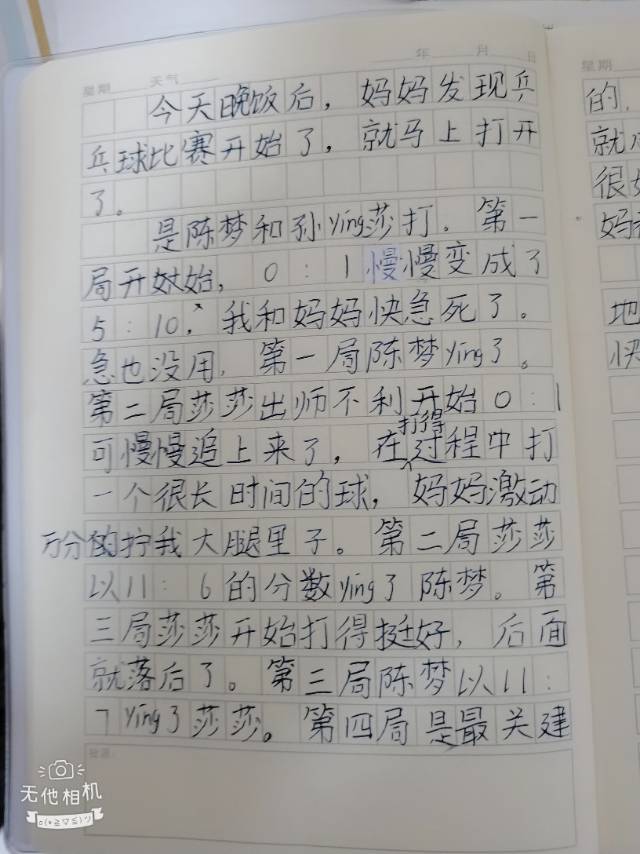 年 月 日
星期 天气
今天晚饭后，妈妈发现乒
乓球比赛开始了，就马上打开
了。
是陈梦和孙ying莎打。第一
局开始，0：1慢慢变成了
5：10，我和妈妈快急死了。
急也没用，第一局陈梦ying了。
第二局莎莎出师不利开始0：1
可慢慢追上来了，在打得过程中打
一个很长时间的球，妈妈激动
万分的拧我大腿里子。第二局莎莎
以11：6的分数ying了陈梦。第
三局莎莎开始打得挺好，后面
就落后了。第三局陈梦以11：
7ying了莎莎。第四局是最关建
星期
的，
就
很
妈
地
快
无他相机